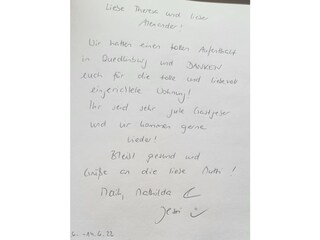 Liebe Theresa und lieber
Alexander!
Wir hatten einen tollen Aufenthalt
in Quedlinburg und DANKEN
euch für die tolle und liebevoll
eingerichtete Wohnung!
Ihr seid sehr gute Gastgeber
und wir kommen gerne
wieder!
Bleibt gesund und
Grüße an die liebe Mutti!
Mathilda
Jessi